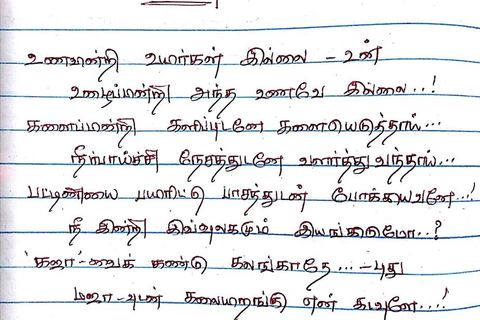 உணவன்றி உயிர்கள் இல்லை - உன்
உழைப்பன்றி அந்த உணவே இல்லை..!
களைப்பன்றி களிப்புடனே களையெடுத்தாய்...
நீர்பாய்ச்சி நேசத்துடனே வளர்த்து வந்தாய்...
பட்டினியை பயிரிட்டு பாசத்துடன் போக்கியவனே...!
நீ இன்றி இவ்வுலகமும் இயங்கிடுமோ..?
'கஜா'-வைக் கண்டு கலங்காதே... - புது
மஜா-வுடன் களமிறங்கு என் கடவுளே...!